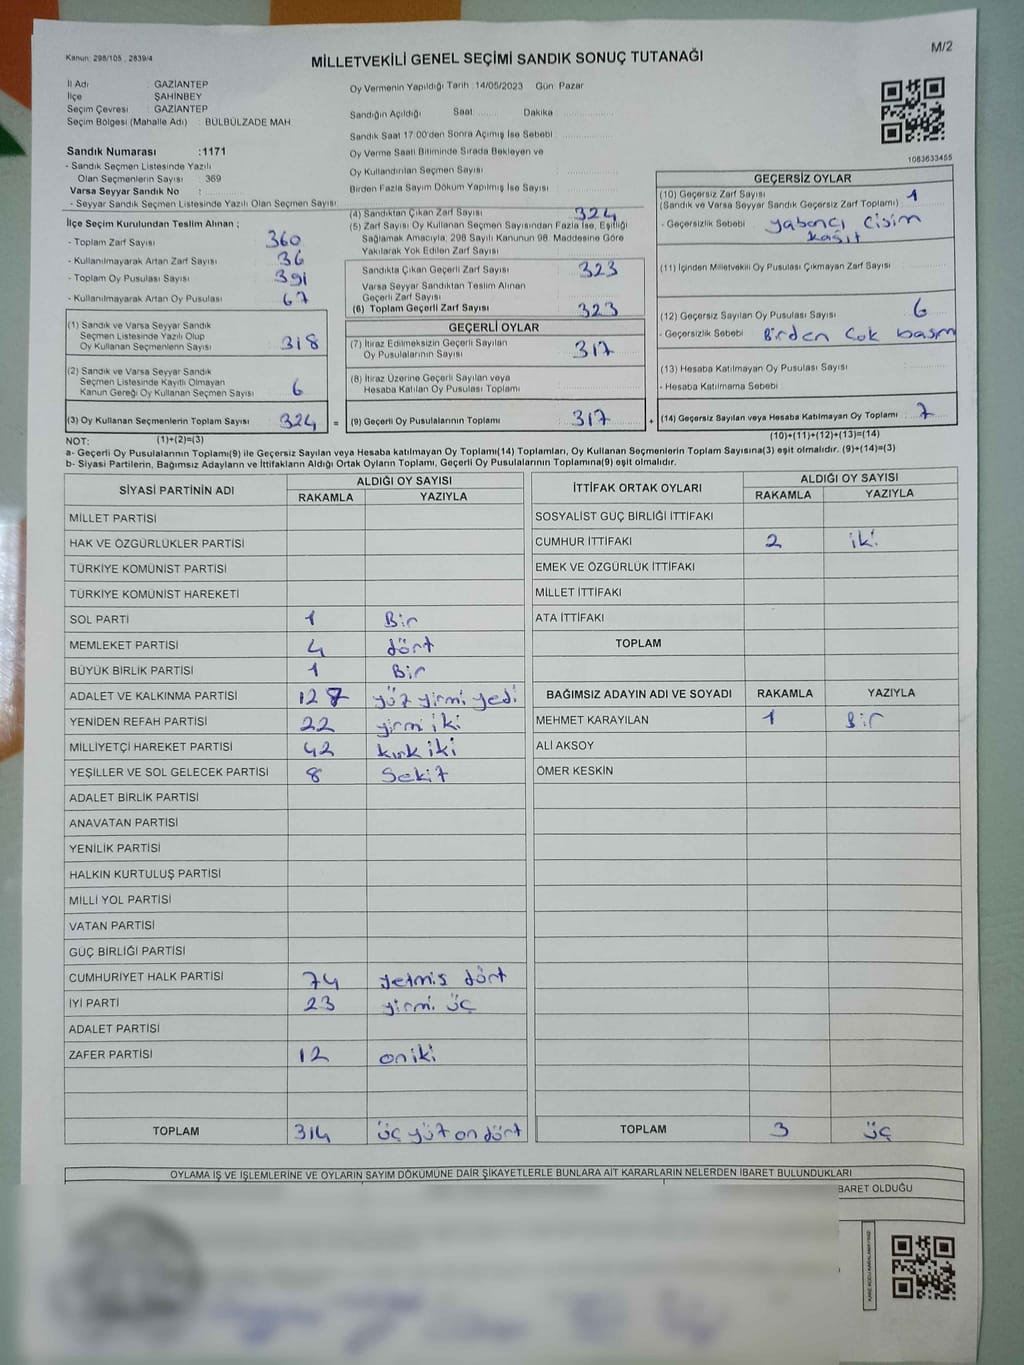 Kanun: 298/105, 2839/4
MİLLETVEKİLİ GENEL SEÇİMİ SANDIK SONUÇ TUTANAĞI
M/2
İl Adı : GAZİANTEP
İlçe : ŞAHİNBEY
Seçim Çevresi : GAZİANTEP
Seçim Bölgesi (Mahalle Adı) : BÜLBÜLZADE MAH.
Sandık Numarası :1171
- Sandık Seçmen Listesinde Yazılı
Olan Seçmenlerin Sayısı : 369
Varsa Seyyar Sandık No :
- Seyyar Sandık Seçmen Listesinde Yazılı Olan Seçmen Sayısı
Oy Vermenin Yapıldığı Tarih :14/05/2023 Gün: Pazar
Sandığın Açıldığı Saat ........ Dakika ................
Sandık Saat 17:00'den Sonra Açılmış İse Sebebi
Oy Verme Saati Bitiminde Sırada Bekleyen ve
Oy Kullandırılan Seçmen Sayısı
Birden Fazla Sayım Döküm Yapılmış İse Sayısı
1083633455
İlçe Seçim Kurulundan Teslim Alınan ;
- Toplam Zarf Sayısı 360
- Kullanılmayarak Artan Zarf Sayısı 36
- Toplam Oy Pusulası Sayısı 391
- Kullanılmayarak Artan Oy Pusulası 67
(1) Sandık ve Varsa Seyyar Sandık
Seçmen Listesinde Yazılı Olup
Oy Kullanan Seçmenlerin Sayısı 318
(2) Sandık ve Varsa Seyyar Sandık
Seçmen Listesinde Kayıtlı Olmayan
Kanun Gereği Oy Kullanan Seçmen Sayısı 6
(3) Oy Kullanan Seçmenlerin Toplam Sayısı 324 =
(4) Sandıktan Çıkan Zarf Sayısı 324
(5) Zarf Sayısı Oy Kullanan Seçmen Sayısından Fazla İse, Eşitliği
Sağlamak Amacıyla, 298 Sayılı Kanunun 98. Maddesine Göre
Yakılarak Yok Edilen Zarf Sayısı
Sandıkta Çıkan Geçerli Zarf Sayısı 323
Varsa Seyyar Sandıktan Teslim Alınan
Geçerli Zarf Sayısı
(6) Toplam Geçerli Zarf Sayısı 323
GEÇERLİ OYLAR
(7) İtiraz Edilmeksizin Geçerli Sayılan
Oy Pusulalarının Sayısı 317
(8) İtiraz Üzerine Geçerli Sayılan veya
Hesaba Katılan Oy Pusulası Toplamı
(9) Geçerli Oy Pusulalarının Toplamı 317 +
GEÇERSİZ OYLAR
(10) Geçersiz Zarf Sayısı 1
(Sandık ve Varsa Seyyar Sandık Geçersiz Zarf Toplamı)
- Geçersizlik Sebebi yabancı cisim
kağıt
(11) İçinden Milletvekili Oy Pusulası Çıkmayan Zarf Sayısı
(12) Geçersiz Sayılan Oy Pusulası Sayısı 6
- Geçersizlik Sebebi Birden çok basım
(13) Hesaba Katılmayan Oy Pusulası Sayısı
- Hesaba Katılmama Sebebi
(14) Geçersiz Sayılan veya Hesaba Katılmayan Oy Toplamı 7
NOT: (1)+(2)=(3)
(10)+(11)+(12)+(13)=(14)
a- Geçerli Oy Pusulalarının Toplamı(9) ile Geçersiz Sayılan veya Hesaba katılmayan Oy Toplamı(14) Toplamları, Oy Kullanan Seçmenlerin Toplam Sayısına(3) eşit olmalıdır. (9)+(14)=(3)
b- Siyasi Partilerin, Bağımsız Adayların ve İttifakların Aldığı Ortak Oyların Toplamı, Geçerli Oy Pusulalarının Toplamına(9) eşit olmalıdır.
SİYASİ PARTİNİN ADI ALDIĞI OY SAYISI
RAKAMLA YAZIYLA
MİLLET PARTİSİ
HAK VE ÖZGÜRLÜKLER PARTİSİ
TÜRKİYE KOMÜNİST PARTİSİ
TÜRKİYE KOMÜNİST HAREKETİ
SOL PARTİ 1 Bir
MEMLEKET PARTİSİ 4 dört
BÜYÜK BİRLİK PARTİSİ 1 Bir
ADALET VE KALKINMA PARTİSİ 127 yüz yirmi yedi
YENİDEN REFAH PARTİSİ 22 yirmi iki
MİLLİYETÇİ HAREKET PARTİSİ 42 kırk iki
YEŞİLLER VE SOL GELECEK PARTİSİ 8 Sekiz
ADALET BİRLİK PARTİSİ
ANAVATAN PARTİSİ
YENİLİK PARTİSİ
HALKIN KURTULUŞ PARTİSİ
MİLLİ YOL PARTİSİ
VATAN PARTİSİ
GÜÇ BİRLİĞİ PARTİSİ
CUMHURİYET HALK PARTİSİ 74 yetmiş dört
İYİ PARTİ 23 yirmi üç
ADALET PARTİSİ
ZAFER PARTİSİ 12 on iki
TOPLAM 314 üç yüz on dört
İTTİFAK ORTAK OYLARI ALDIĞI OY SAYISI
RAKAMLA YAZIYLA
SOSYALİST GÜÇ BİRLİĞİ İTTİFAKI
CUMHUR İTTİFAKI 2 iki
EMEK VE ÖZGÜRLÜK İTTİFAKI
MİLLET İTTİFAKI
ATA İTTİFAKI
TOPLAM
BAĞIMSIZ ADAYIN ADI VE SOYADI RAKAMLA YAZIYLA
MEHMET KARAYILAN 1 Bir
ALİ AKSOY
ÖMER KESKİN
TOPLAM 3 üç
OYLAMA İŞ VE İŞLEMLERİNE VE OYLARIN SAYIM DÖKÜMÜNE DAİR ŞİKAYETLERLE BUNLARA AİT KARARLARIN NELERDEN İBARET BULUNDUKLARI
BARET OLDUĞU